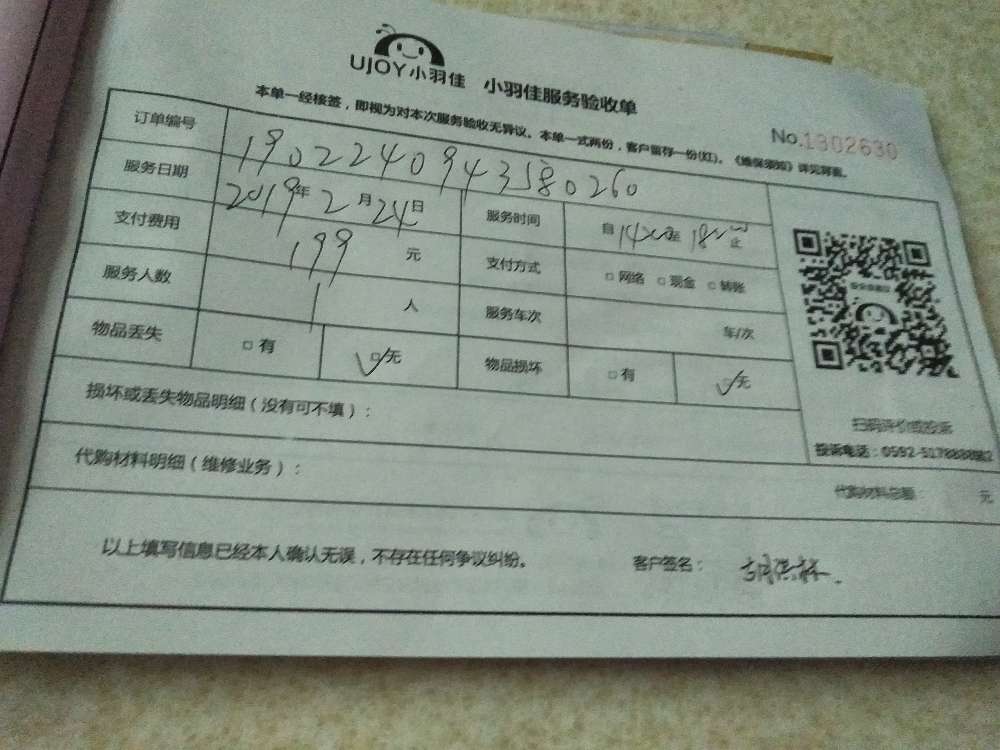 UJOY小羽佳 小羽佳服务验收单
本单一经核签，即视为对本次服务验收无异议。本单一式两份，客户留存一份(红)。《维保须知》详见背面。
No.1302630
订单编号 1902240943580260
服务日期 2019年2月24日 服务时间 自14:00至18:00止
支付费用 199元 支付方式 □网络 □现金 □转账
服务人数 1人 服务车次 车/次
物品丢失 □有 ☑无 物品损坏 □有 ☑无
损坏或丢失物品明细（没有可不填）：
扫码评价或投诉
代购材料明细（维修业务）：
代购材料总额 元
以上填写信息已经本人确认无误，不存在任何争议纠纷。 客户签名：